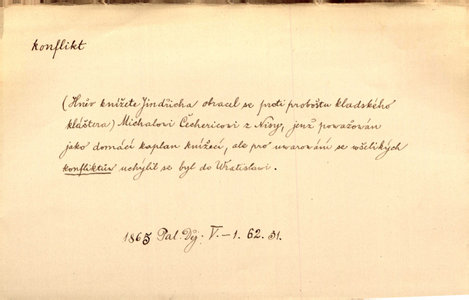 konflikt
(Hněv knížete Jindřicha obracel se proti proboštu kladského
kláštera) Michalovi Čechericovi z Nisy, jenž považován
jako domácí kaplan knížecí, ale pro uwarowání se wšelikých
konfliktův uchýlil se byl do Wratislavi.
1865 Pal. Děj. V.–1. 62. 31.